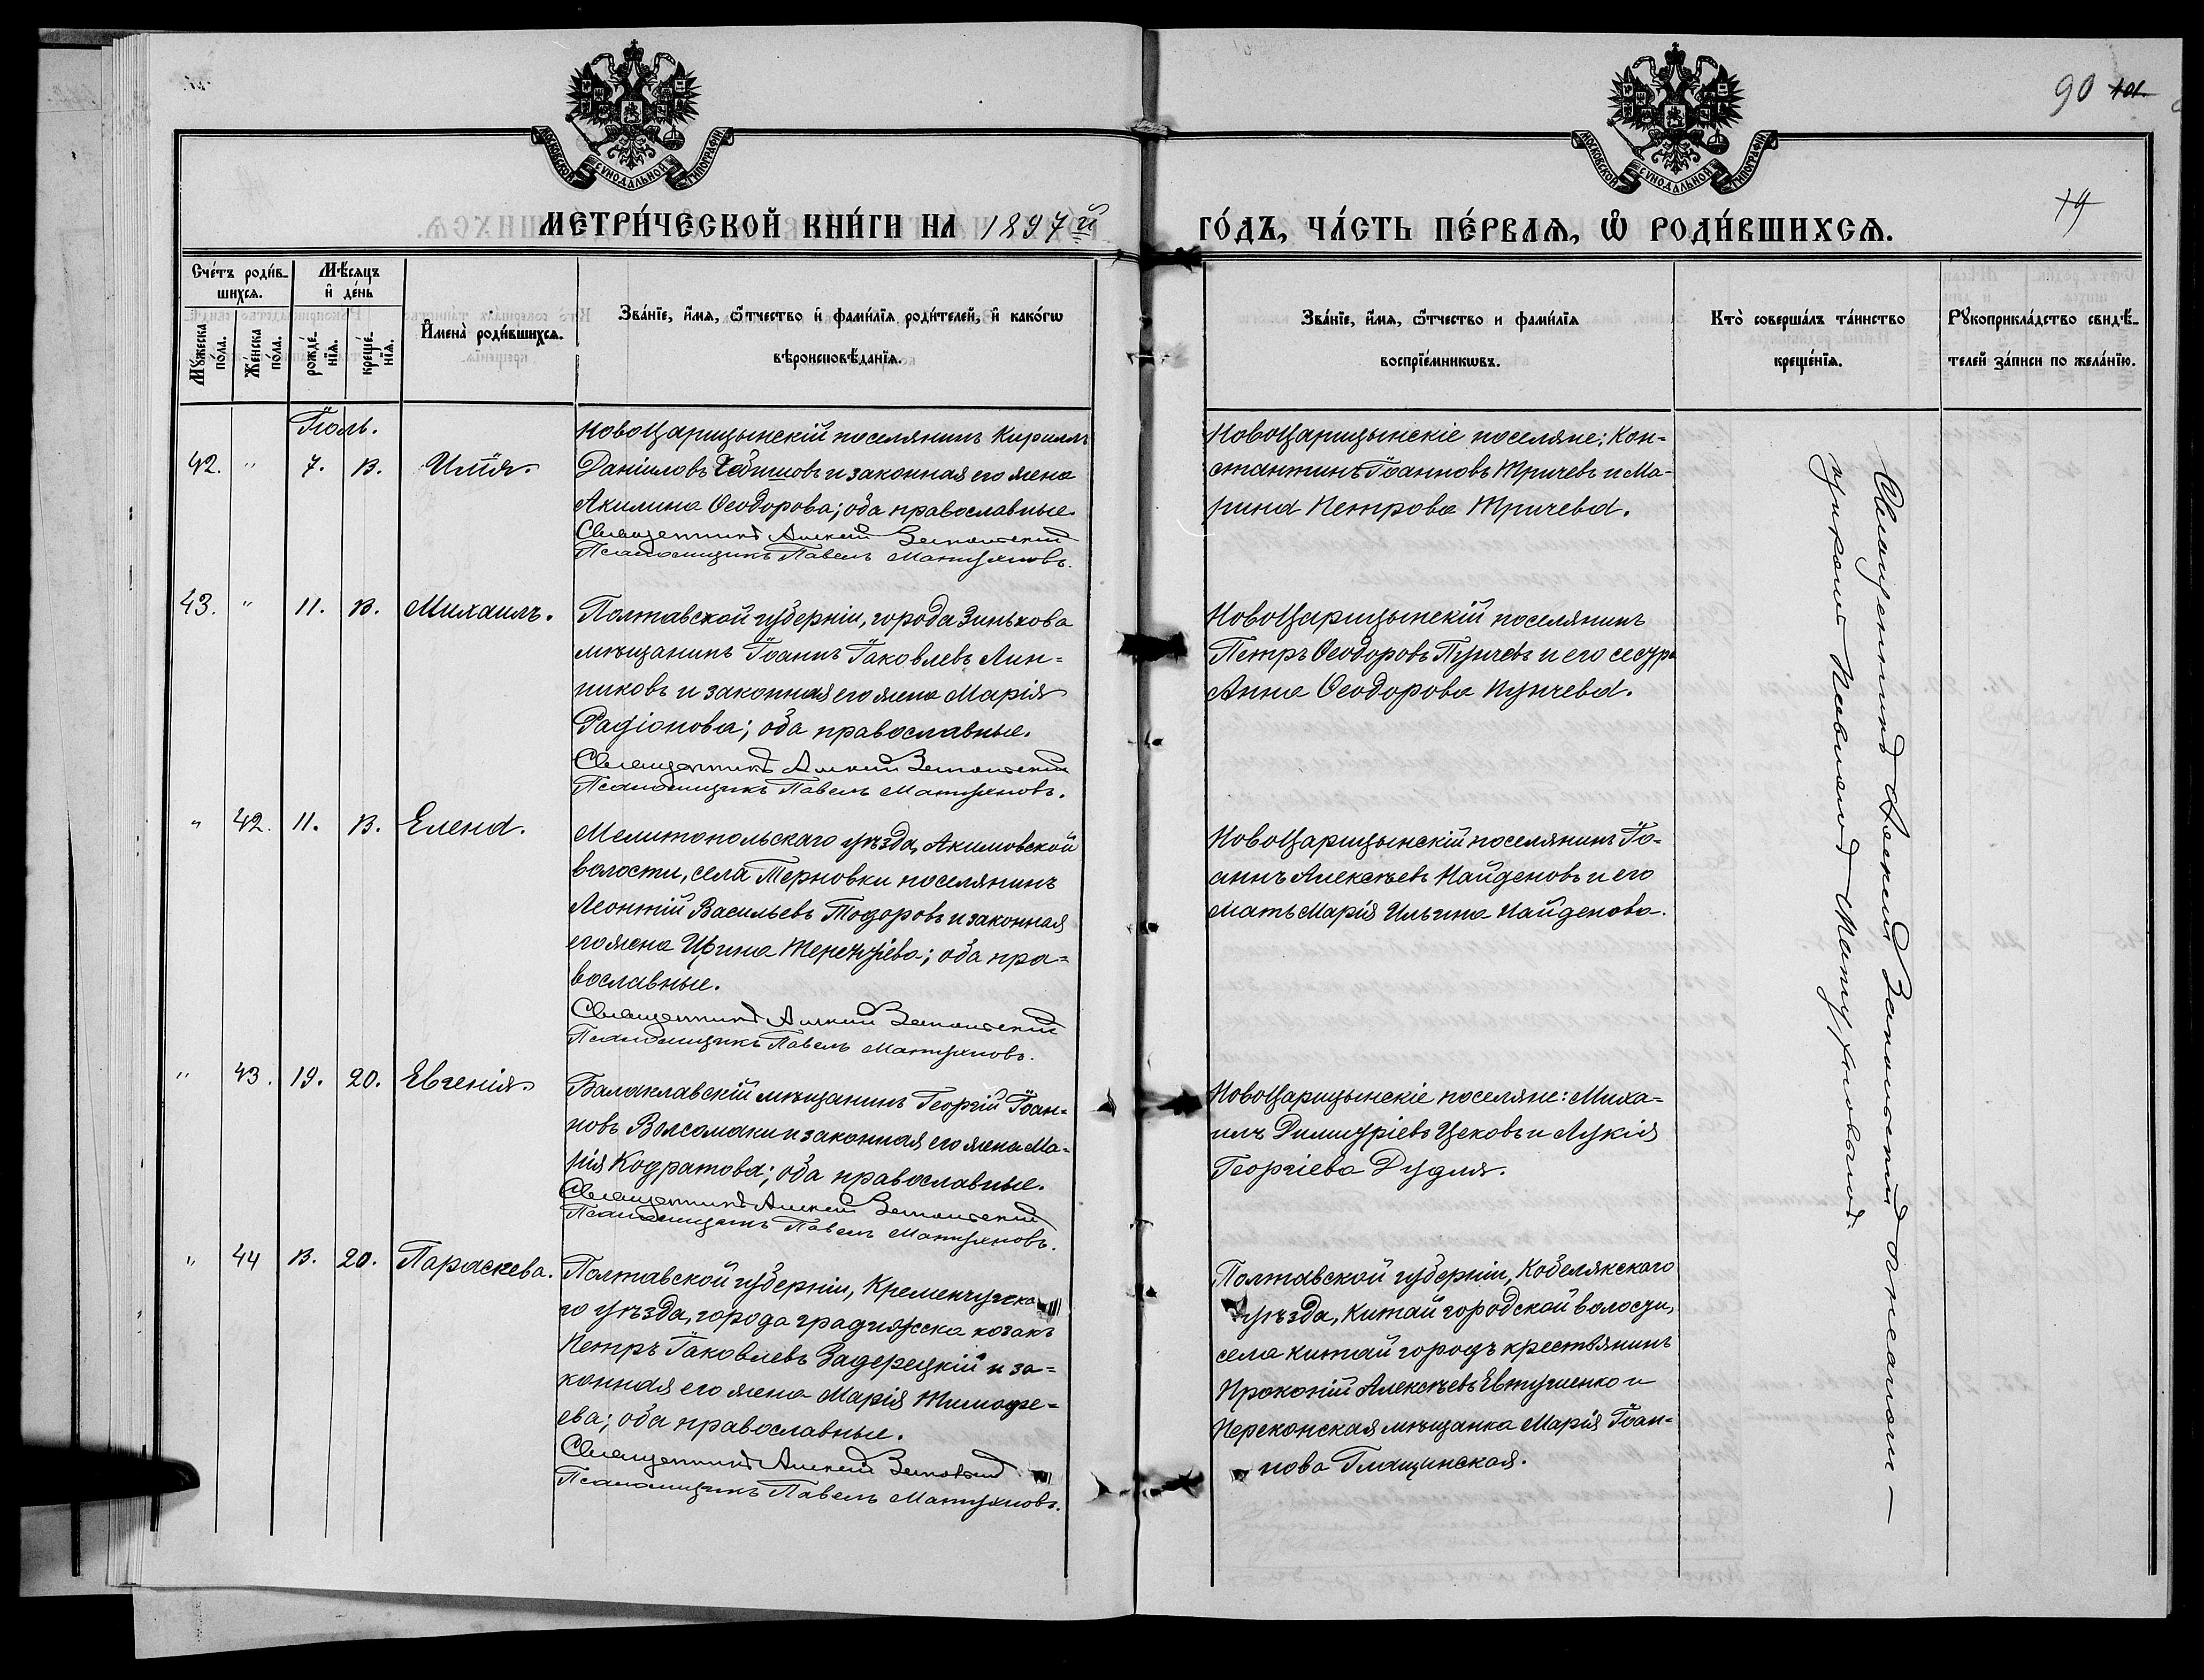 МОСКОВСКОЙ СѴНОДАЛЬНОЙ ТИПОГРАФІИ
МОСКОВСКОЙ СѴНОДАЛЬНОЙ ТИПОГРАФІИ
90
МЕТРИ́ЧЕСКОЙ КНИ́ГИ НА 1897й ГО́ДЪ, ЧА́СТЬ ПЕ́РВАѦ, Ѽ РОДИ́ВШИХСѦ.
19
Сче́тъ роди́в-
шихсѧ.
Мꙋ́жеска по́ла.
Же́нска по́ла.
Мѣ́сѧцъ
и҆ де́нь
рожде́-
нїѧ.
креще́-
нїѧ.
И҆мена̀ роди́вшихсѧ.
Зва́нїе, и҆́мѧ, ѻ҆́тчество и҆ фами́лїѧ роди́телей, и҆ како́гѡ
вѣроисповѣ́данїѧ.
Зва́нїе, и҆́мѧ, ѻ҆́тчество и фами́лїѧ
воспрїе́мникѡвъ.
Кто̀ соверша́лъ та́инство
креще́нїѧ.
Рꙋкоприкла́дство свидѣ́-
телей за́писи по жела́нїю.
Іюль.
42. " 7. 13. Илія.
Новоцарицынскій поселянинъ Кириллъ
Даниловъ и законная его жена
Акилина Ѳеодорова; оба православные.
Священникъ Алексій
Псаломщикъ Павелъ Матухновъ.
Новоцарицынскіе поселяне: Кон-
стантинъ Іоанновъ Тричевъ и Ма-
рина Петрова Тричева.
43. " 11. 13. Михаилъ.
Полтавской губерніи, города Зинькова
мѣщанинъ Іоаннъ Іаковлевъ Лин-
никовъ и законная его жена Марія
Радіонова; оба православные.
Священникъ Алексій
Псаломщикъ Павелъ Матухновъ.
Новоцарицынскій поселянинъ
Петръ Ѳеодоровъ Пунчевъ и его сестра
Анна Ѳеодорова Пунчева.
" 42. 11. 13. Елена.
Мелитопольскаго уѣзда, Акимовской
волости, села Терновки поселянинъ
Леонтій Васильевъ Тодоровъ и законная
его жена Ирина Терентіева; оба пра-
вославные.
Священникъ Алексій
Псаломщикъ Павелъ Матухновъ.
Новоцарицынскій поселянинъ Іо-
аннъ Алексѣевъ Найденовъ и его
мать Марія Ильина Найденова.
" 43. 19. 20. Евгенія.
Балаклавскій мѣщанинъ Георгій Іоан-
новъ Волсамаки и законная его жена Ма-
рія Кодратова; оба православные.
Священникъ Алексій
Псаломщикъ Павелъ Матухновъ.
Новоцарицынскіе поселяне: Миха-
илъ Димитріевъ Цековъ и Лукія
Георгіева Дудля.
" 44 13. 20. Параскева.
Полтавской губерніи, Кременчугска-
го уѣзда, города Градижска козакъ
Петръ Іаковлевъ Задерецкій и за-
конная его жена Марія Тимоѳе-
ева; оба православные.
Священникъ Алексій
Псаломщикъ Павелъ Матухновъ.
Полтавской губерніи, Кобелякского
уѣзда, Китайгородской волости,
села Китайгородъ крестьянинъ
Прокопій Алексѣевъ Евтушенко и
Перекопская мѣщанка Марія Іоан-
нова Глащинская.
Священникъ Алексій съ псаломщ-
щикомъ Павломъ Матухновымъ.